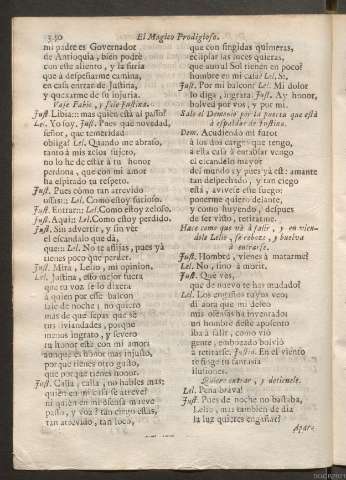 350 El Magico Prodigioso.
mi padre es Governador
de Antioquia, bien podrè
con este aliento, y la furia
que à despeñarme camina,
en casa entrar de Justina,
y quexarme de su injuria.
Vase Fabio, y sale Justina.
Just. Libia::: mas quien està al passo?
Lel. Yo soy. Just. Pues què novedad,
señor, què temeridad
obliga? Lel. Quando me abraso,
tanto à mis zelos sujeto,
no lo he de estàr à tu honor
perdona, que con mi amor
ha espirado tu respeto.
Just. Pues còmo tan atrevido
ossas::: Lel. Como estoy furioso.
Just. Entrar::: Lel. Como estoy zeloso.
Just. Aqui::: Lel. Como estoy perdido.
Just. Sin advertir, y sin vèr
el escandalo que dà,
que::: Lel. No te aflijas, pues yà
tienes poco que perder.
Just. Mira, Lelio, mi opinion.
Lel. Justina, esso mejor fuera
que tu voz se lo dixera
à quien por esse balcon
sale de noche; no quiero
mas de que sepas que sè
tus liviandades, porque
menos ingrato, y severo
tu honor estè con mi amor
aunque es honor mas injusto,
por què tienes otro gusto,
que por què tienes honor.
Just. Calla, calla, no hables mas;
quien en mi casa se atreve?
ni quien en mi ofensa mueve
passo, y voz? tan ciego estàs,
tan atrevido, tan loco,
que con fingidas quimeras,
eclipsar las luces quieras,
que aun al Sol tienen en poco?
hombre en mi casa? Lel. Si.
Just. Por mi balcon? Lel. Mi dolor
lo diga, ingrata. Just. Ay honor,
bolved por vos, y por mi.
Sale el Demonio por la puerta que està
à espaldas de Justina.
Dem. Acudiendo mi furor
à los dos cargos que tengo,
à esta casa à entablar vengo
el escandalo mayor
del mundo; y pues yà este amante
tan despechado, y tan ciego
està, avivese este fuego;
ponerme quiero delante,
y como huyendo, despues
de ser visto, retirarme.
Hace como que và à salir, y en vien-
dole Lelio, se reboza, y buelve
à entrarse.
Just. Hombre, vienes à matarme?
Lel. No, sino à morir.
Just. Què vès,
que de nuevo te has mudado?
Lel. Los engaños tuyos veo;
dì aora que mi deseo
mis ofensas ha inventado:
un hombre desse aposento
iba à salir, como viò
gente, embozado bolviò
à retirarse. Justin. En el viento
te finge tu fantasia
ilusiones.
Quiere entrar, y detienele.
Lel. Pena brava!
Just. Pues de noche no bastaba,
Lelio, mas tambien de dia
la luz quieres engañar?
Apar-